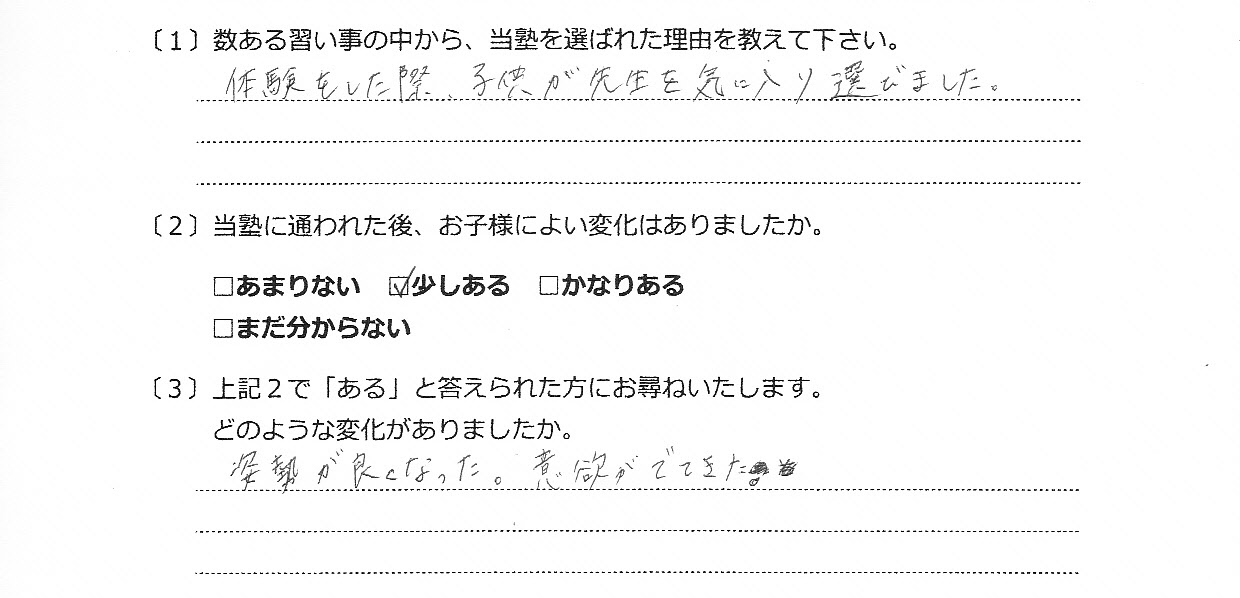 〔１〕数ある習い事の中から、当塾を選ばれた理由を教えて下さい。
体験をした際、子供が先生を気に入り選びました。
〔２〕当塾に通われた後、お子様によい変化はありましたか。
□あまりない ☑少しある □かなりある
□まだ分からない
〔３〕上記２で「ある」と答えられた方にお尋ねいたします。
どのような変化がありましたか。
姿勢が良くなった。意欲がでてきた。